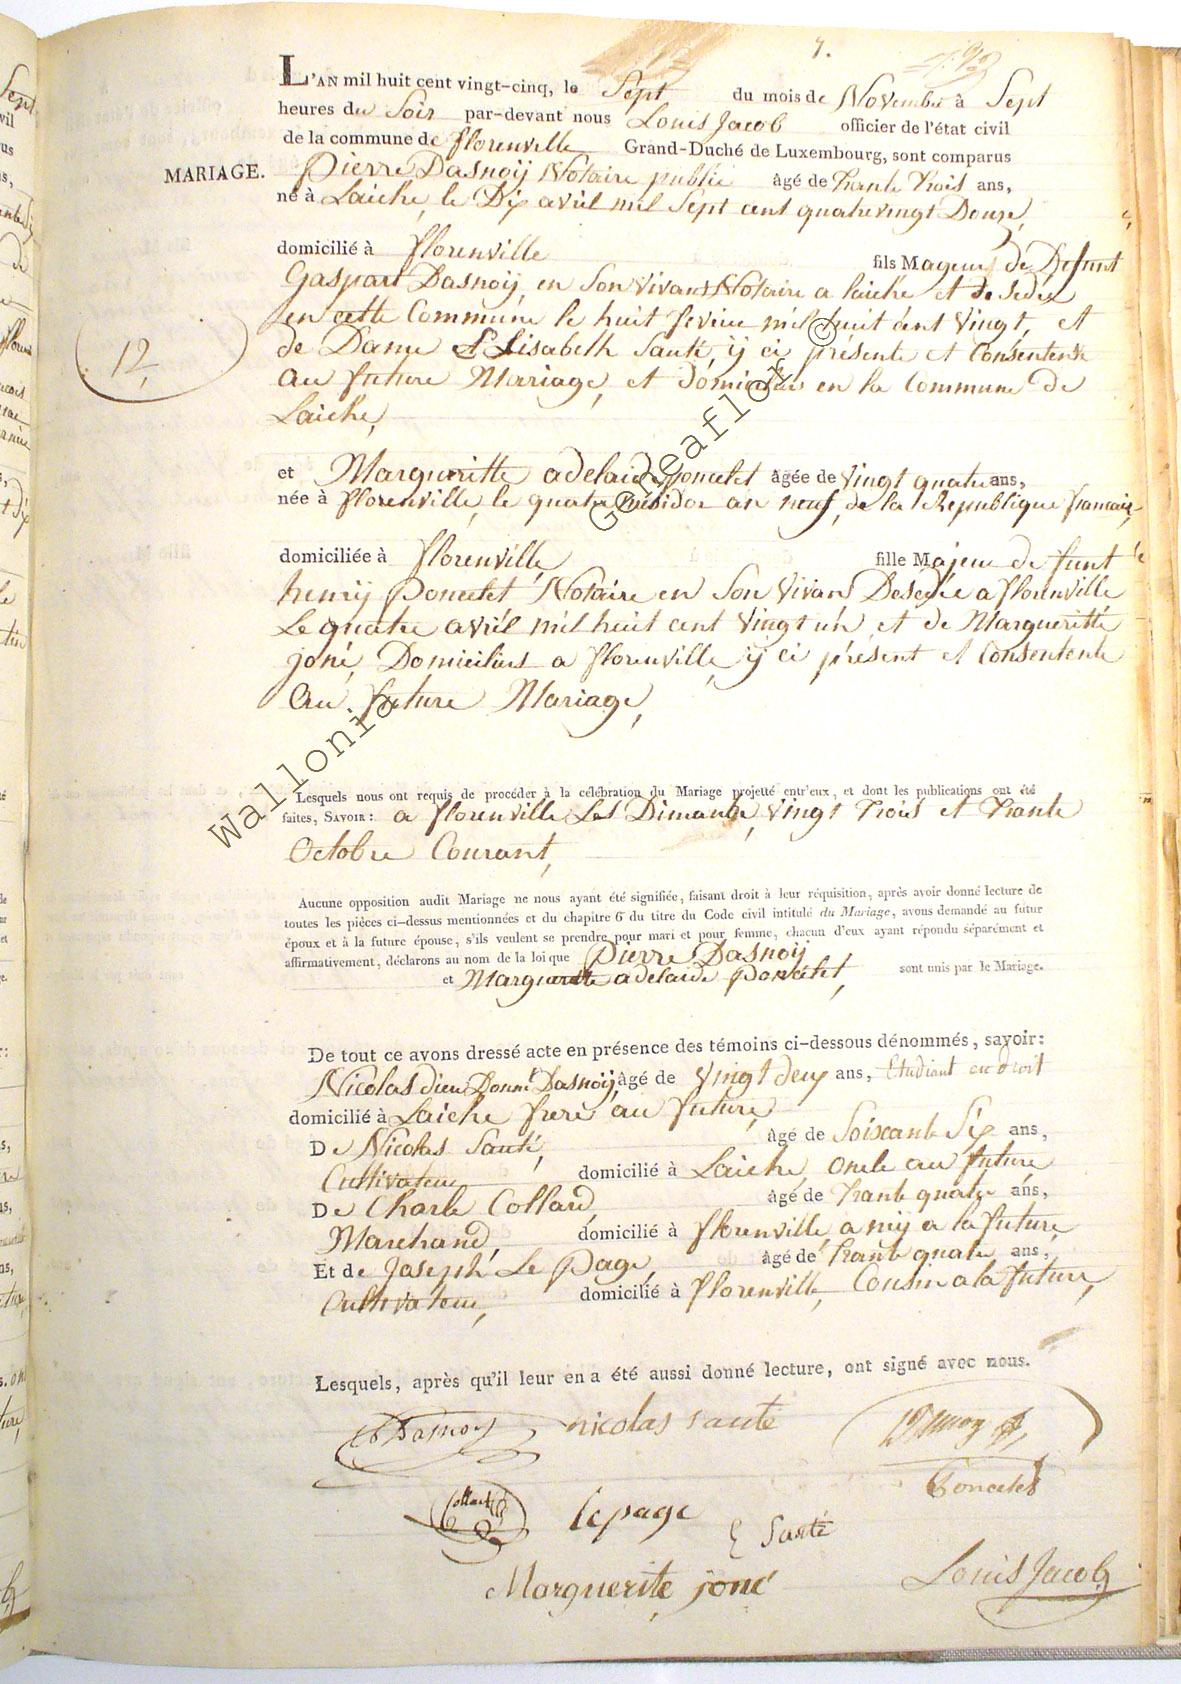 7.
L'AN mil huit cent vingt-cinq, le Sept du mois de Novembre à Sept
heures du Soir par-devant nous Louis Jacob officier de l'état civil
de la commune de florenville Grand-Duché de Luxembourg, sont comparus
MARIAGE.
Pierre Dasnoÿ Notaire public âgé de trante trois ans,
né à Laiche, le Dix avril mil Sept cent quatrevingt Douze,
domicilié à florenville fils Mageur de Defunt
Gaspart Dasnoÿ, en Son vivant Notaire a laiche et de Sedée
en cette Commune le huit fevrier mil huit cent vingt, et
12,
de Dame Elisabeth Santé, ÿ ci présente et Consentente
au future Mariage, et domiciliée en la Commune de
Laiche,
et Margueritte adelaide poncelet âgée de vingt quatre ans,
née à florenville, le quatre Messidor an neuf, de la République francaise,
domiciliée à florenville, fille Majeure de funt
henrÿ Poncelet Notaire en Son vivant Desedée a florenville
Le quatre avril mil huit cent vingt un, et de Margueritte
joné, Domiciliées a florenville, ÿ ci présent et Consentente
au future Mariage,
Lesquels nous ont requis de procéder à la célébration du Mariage projetté entr'eux, et dont les publications ont été
faites, SAVOIR: a florenville Les Dimange, vingt trois et trante
Octobre Courant,
Aucune opposition audit Mariage ne nous ayant été signifiée, faisant droit à leur réquisition, après avoir donné lecture de
toutes les pièces ci-dessus mentionnées et du chapitre 6 du titre du Code civil intitulé du Mariage, avons demandé au futur
époux et à la future épouse, s'ils veulent se prendre pour mari et pour femme, chacun d'eux ayant répondu séparément et
affirmativement, déclarons au nom de la loi que Pierre Dasnoÿ
et Margueritte adelaide poncelet, sont unis par le Mariage.
De tout ce avons dressé acte en présence des témoins ci-dessous dénommés, savoir:
Nicolas dieu Donné Dasnoÿ, âgé de vingt deux ans, Etudiant en droit
domicilié à Laiche frere au future,
De Nicolas Santé, âgé de Soixante Six ans,
Cultivateur domicilié à Laiche, oncle au future
De Charle Collard, âgé de trante quatre ans,
Marchand, domicilié à florenville, amÿ a la future,
Et de Joseph Le Page, âgé de trante quatre ans,
Cultivateur, domicilié à florenville, Cousin a la future,
Lesquels, après qu'il leur en a été aussi donné lecture, ont signé avec nous.
Dasnoy nicolas santé
Poncelet
Collard lepage E Santé
Marguerite joné Louis Jacob
Wallonia © Geneaflor